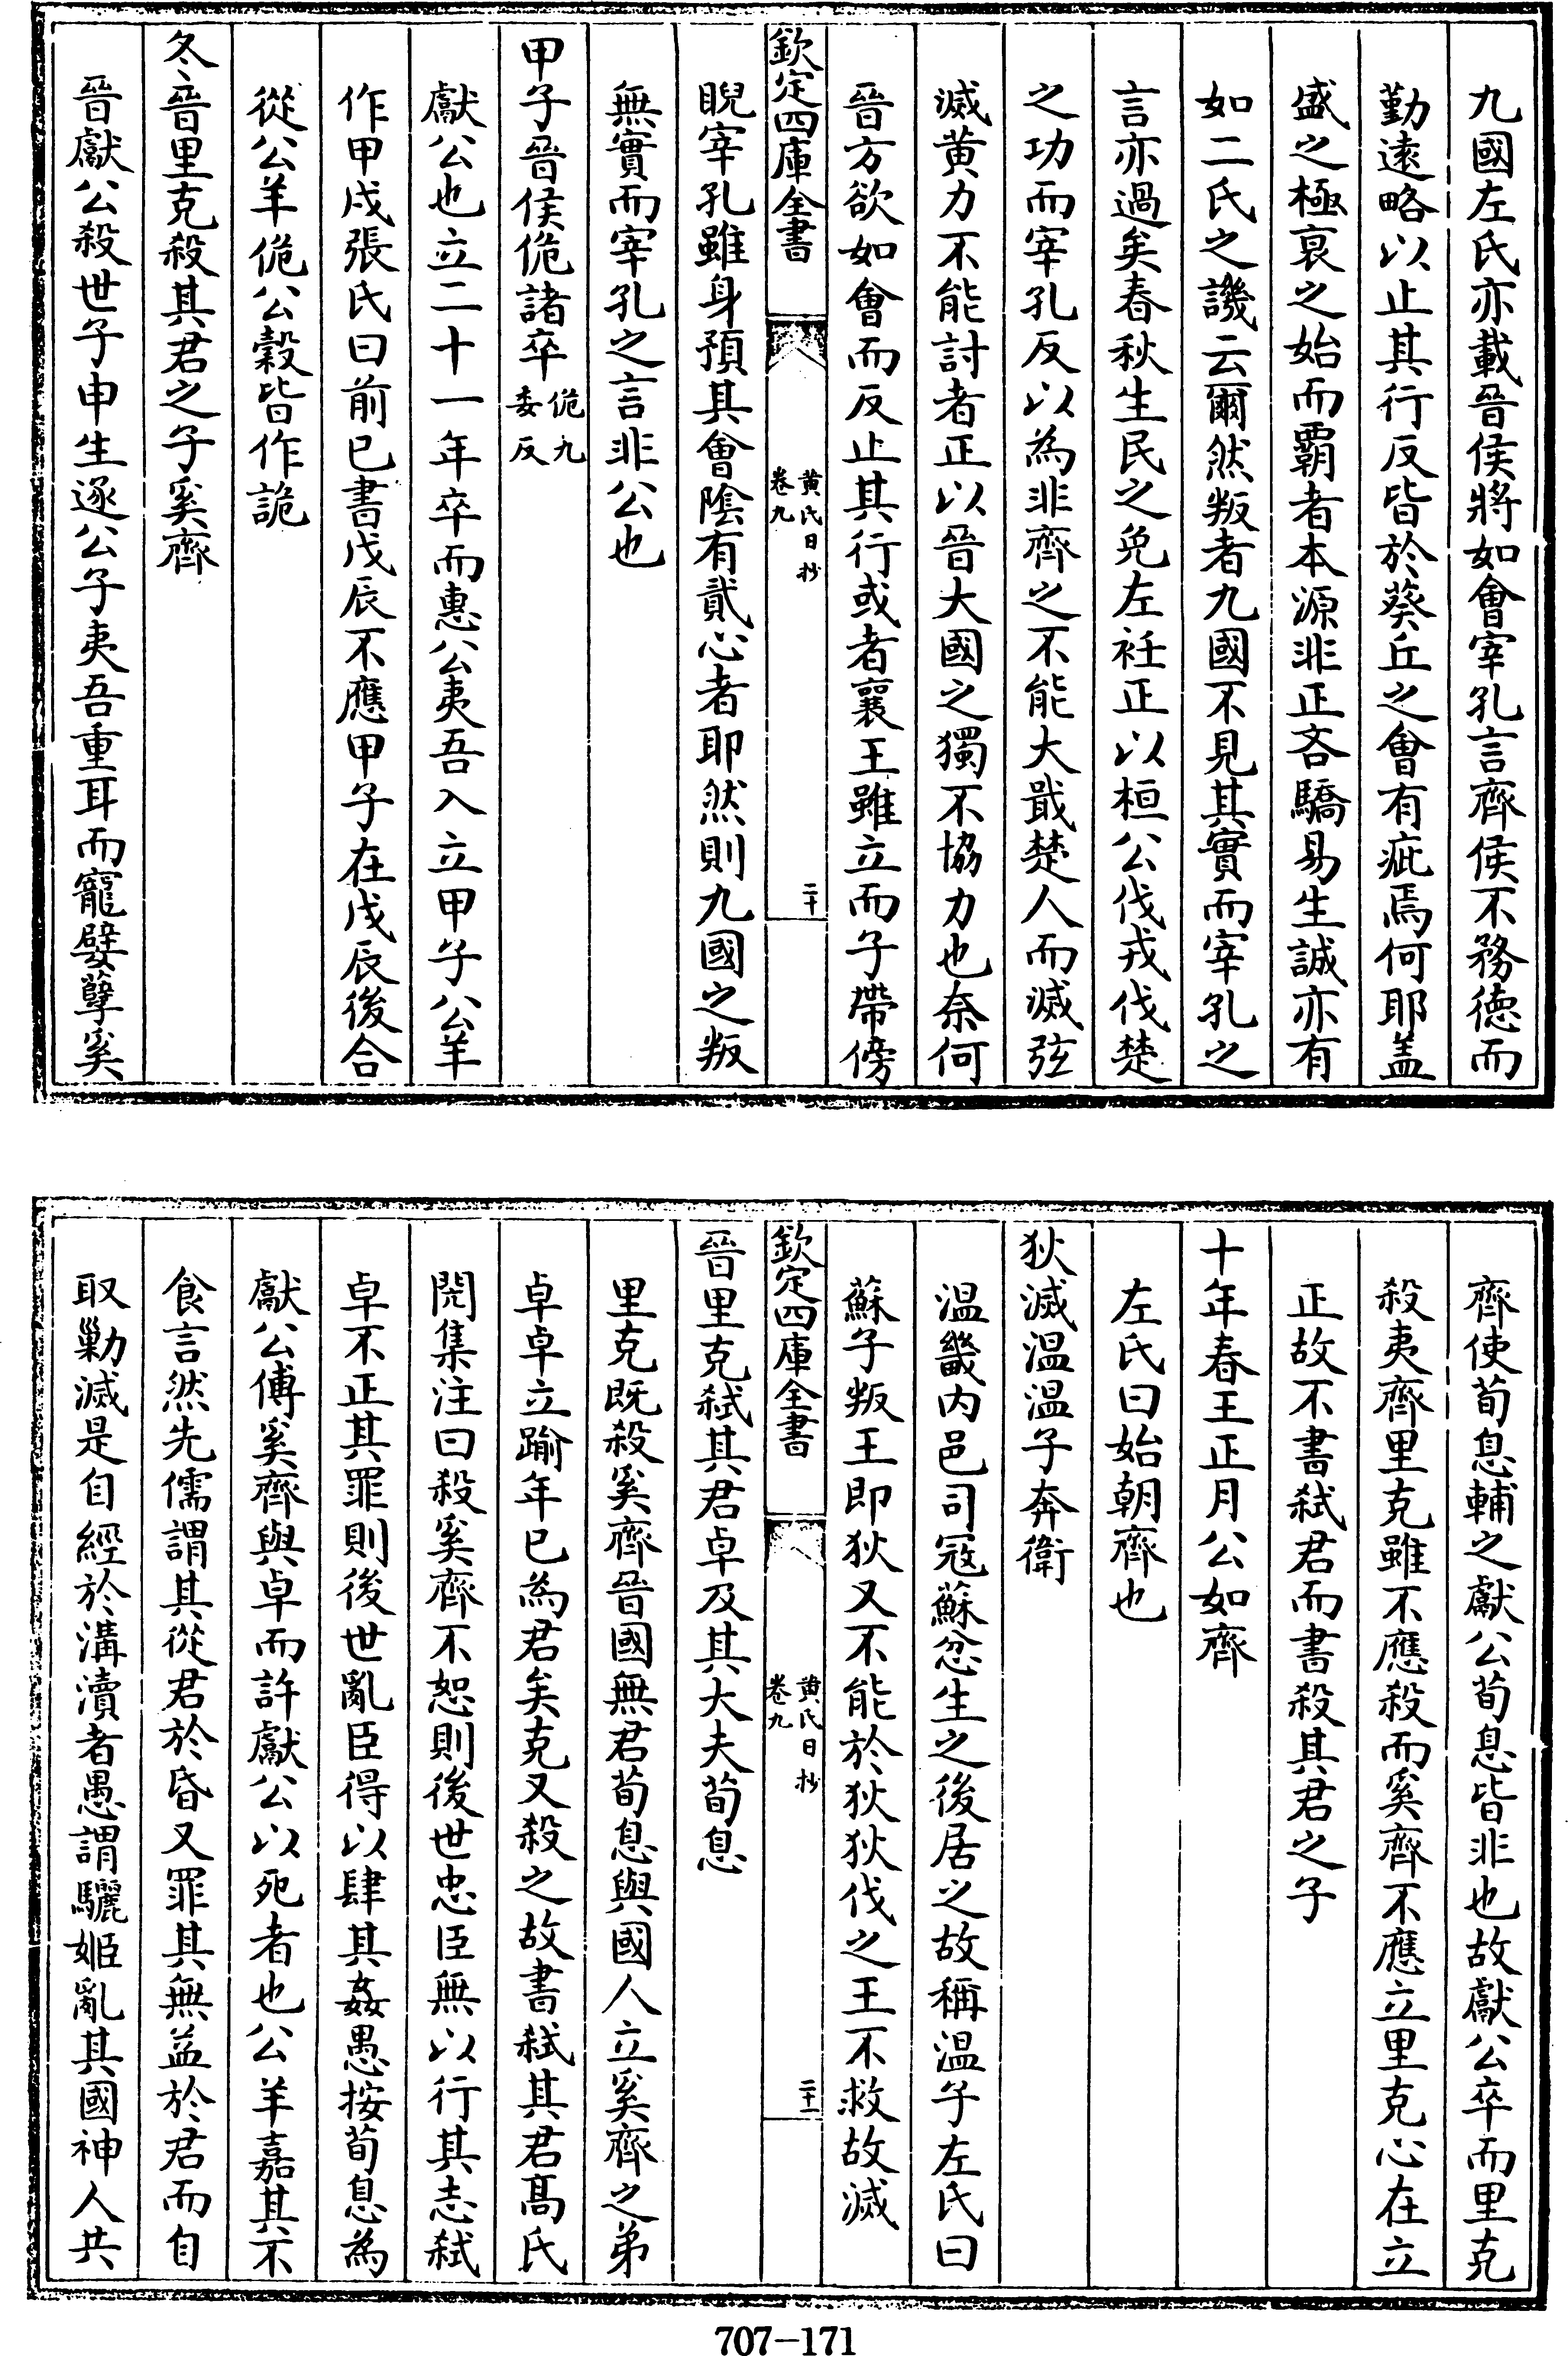 九國左氏亦載晉侯將如會宰孔言齊侯不務德而
勤遠略以止其行反皆於葵丘之會有疵焉何耶蓋
盛之極衰之始而覇者本源非正吝驕易生誠亦有
如二氏之譏云爾然叛者九國不見其實而宰孔之
言亦過矣春秋生民之免左衽正以桓公伐戎伐楚
之功而宰孔反以為非齊之不能大戢楚人而滅弦
滅黄力不能討者正以晉大國之獨不協力也奈何
晉方欲如會而反止其行或者襄王雖立而子帶傍
欽定四庫全書
黄氏日抄
卷九
二十
睨宰孔雖身預其會陰有貳心者耶然則九國之叛
無實而宰孔之言非公也
甲子晉侯佹諸卒佹九委反
獻公也立二十一年卒而惠公夷吾入立甲子公羊
作甲戌張氏曰前已書戊辰不應甲子在戊辰後合
從公羊佹公穀皆作詭
冬晉里克殺其君之子奚齊
晉獻公殺世子申生逐公子夷吾重耳而寵嬖孽奚
齊使荀息輔之獻公荀息皆非也故獻公卒而里克
殺夷齊里克雖不應殺而奚齊不應立里克心在立
正故不書弑君而書殺其君之子
十年春王正月公如齊
左氏曰始朝齊也
狄滅溫溫子奔衛
溫畿内邑司冦蘇忿生之後居之故稱溫子左氏曰
蘇子叛王即狄又不能於狄狄伐之王不救故滅
欽定四庫全書
黄氏日抄
卷九
二十一
晉里克弑其君卓及其大夫荀息
里克既殺奚齊晉國無君荀息與國人立奚齊之弟
卓卓立踰年已為君矣克又殺之故書弑其君髙氏
閌集注曰殺奚齊不恕則後世忠臣無以行其志弑
卓不正其罪則後世亂臣得以肆其姦愚按荀息為
獻公傅奚齊與卓而許獻公以死者也公羊嘉其不
食言然先儒謂其從君於昏又罪其無益於君而自
取勦滅是自經於溝瀆者愚謂驪姬亂其國神人共
707-171